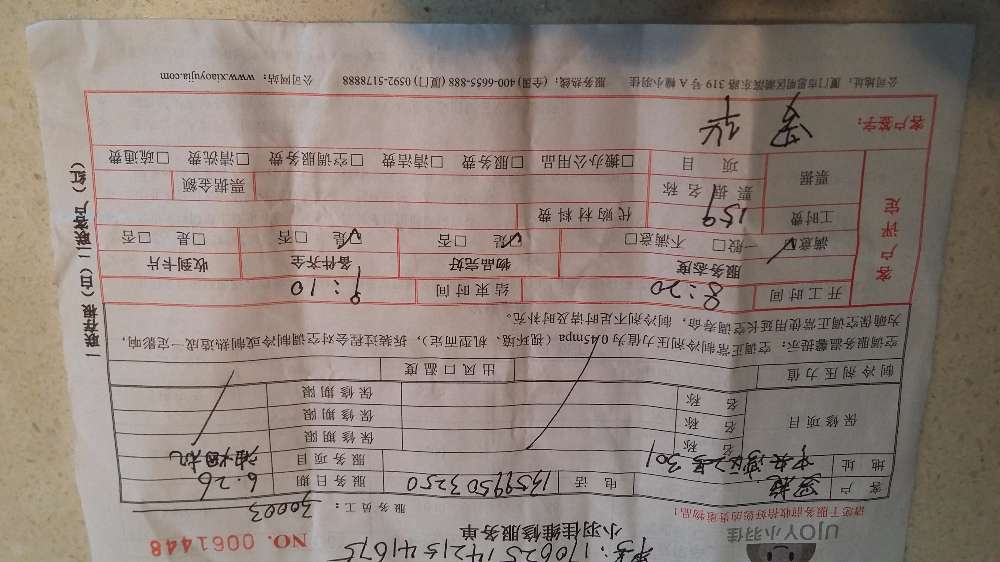 单号:1706251421541675
UJOY小羽佳
小羽佳维修服务单
NO. 0061448
请您于服务前收拾好您的贵重物品!
服务员工: 30003
客户 电话 13599503250 服务日期 6.26
地址 中央湾区2号301 服务项目 油烟机
保修项目 名称 保修期限
名称 保修期限
名称 保修期限
制冷剂压力值 出风口温度
空调服务温馨提示:空调正常制冷剂压力值为0.45mpa(视环境、机型而定),拆装过程会对空调制冷或制热造成一定影响,
为确保空调正常使用延长空调寿命,制冷剂不足时请及时补充。
开工时间 8:20 结束时间 9:10
客户评定
服务态度 物品完好 备件齐全 收到卡片
满意 一般□ 不满意□ 是 否□ 是 否□ 是□ 否□
工时费 159 代购材料费
票据 票据名称 票据金额
项目 □搬办公用品 □服务费 □清洁费 □空调服务费 □清洗费 □疏通费
客户签字:
公司地址:厦门市思明区湖滨东路319号A幢小羽佳 服务热线:(全国)400-6655-888 (厦门)0592-5178888 公司网站:www.xiaoyujia.com
一联存根(白)二联客户(红)